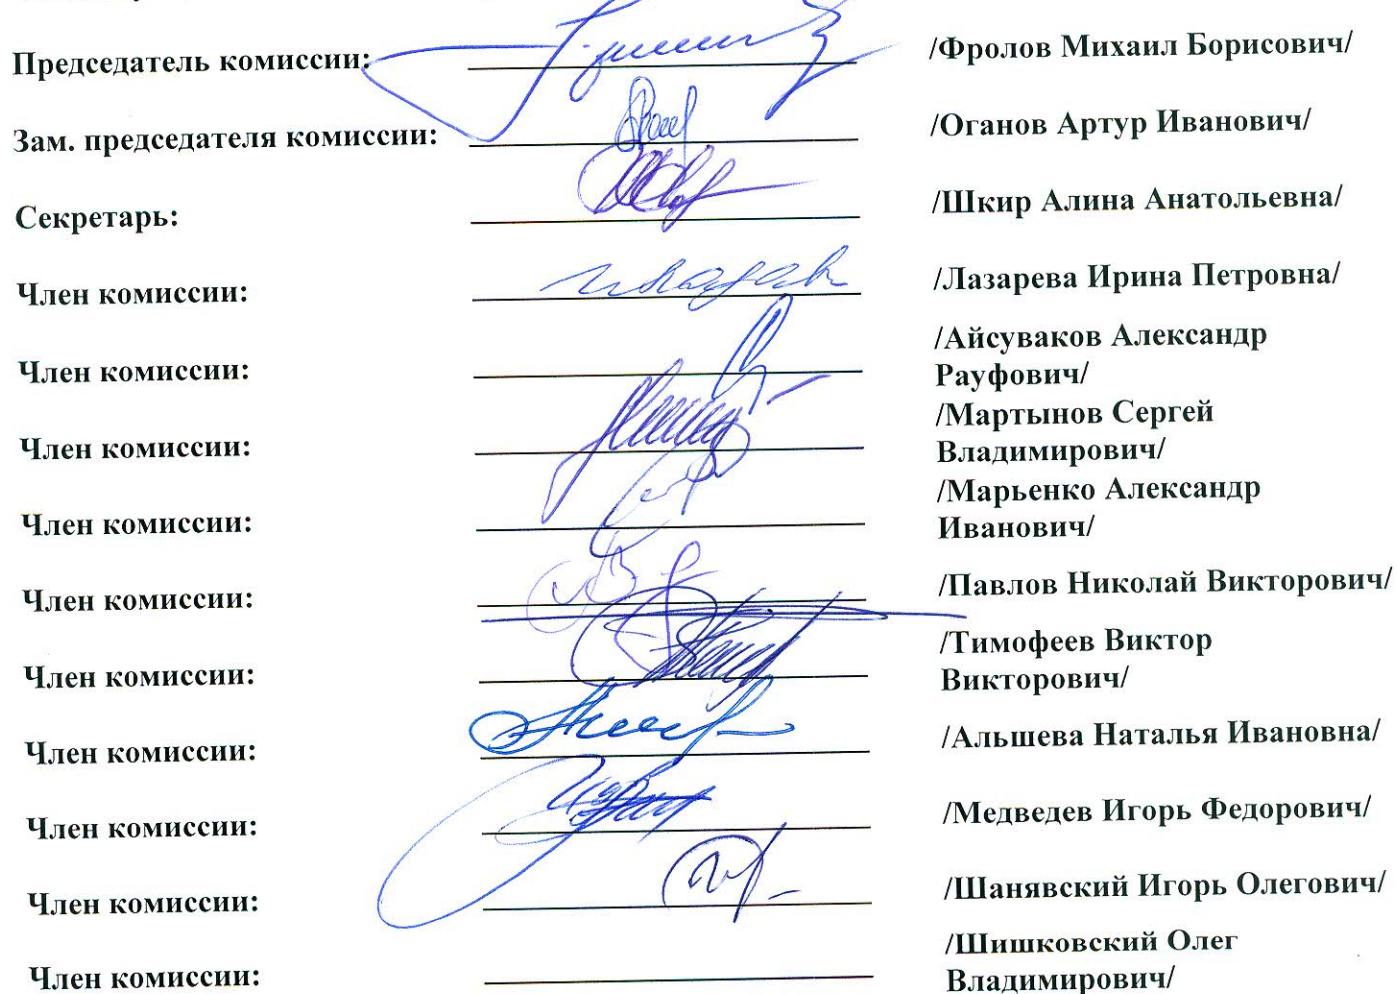 Председатель комиссии: /Фролов Михаил Борисович/
Зам. председателя комиссии: /Оганов Артур Иванович/
Секретарь: /Шкир Алина Анатольевна/
Член комиссии: /Лазарева Ирина Петровна/
Член комиссии: /Айсуваков Александр
Рауфович/
Член комиссии: /Мартынов Сергей
Владимирович/
Член комиссии: /Марьенко Александр
Иванович/
Член комиссии: /Павлов Николай Викторович/
Член комиссии: /Тимофеев Виктор
Викторович/
Член комиссии: /Альшева Наталья Ивановна/
Член комиссии: /Медведев Игорь Федорович/
Член комиссии: /Шанявский Игорь Олегович/
Член комиссии: /Шишковский Олег
Владимирович/